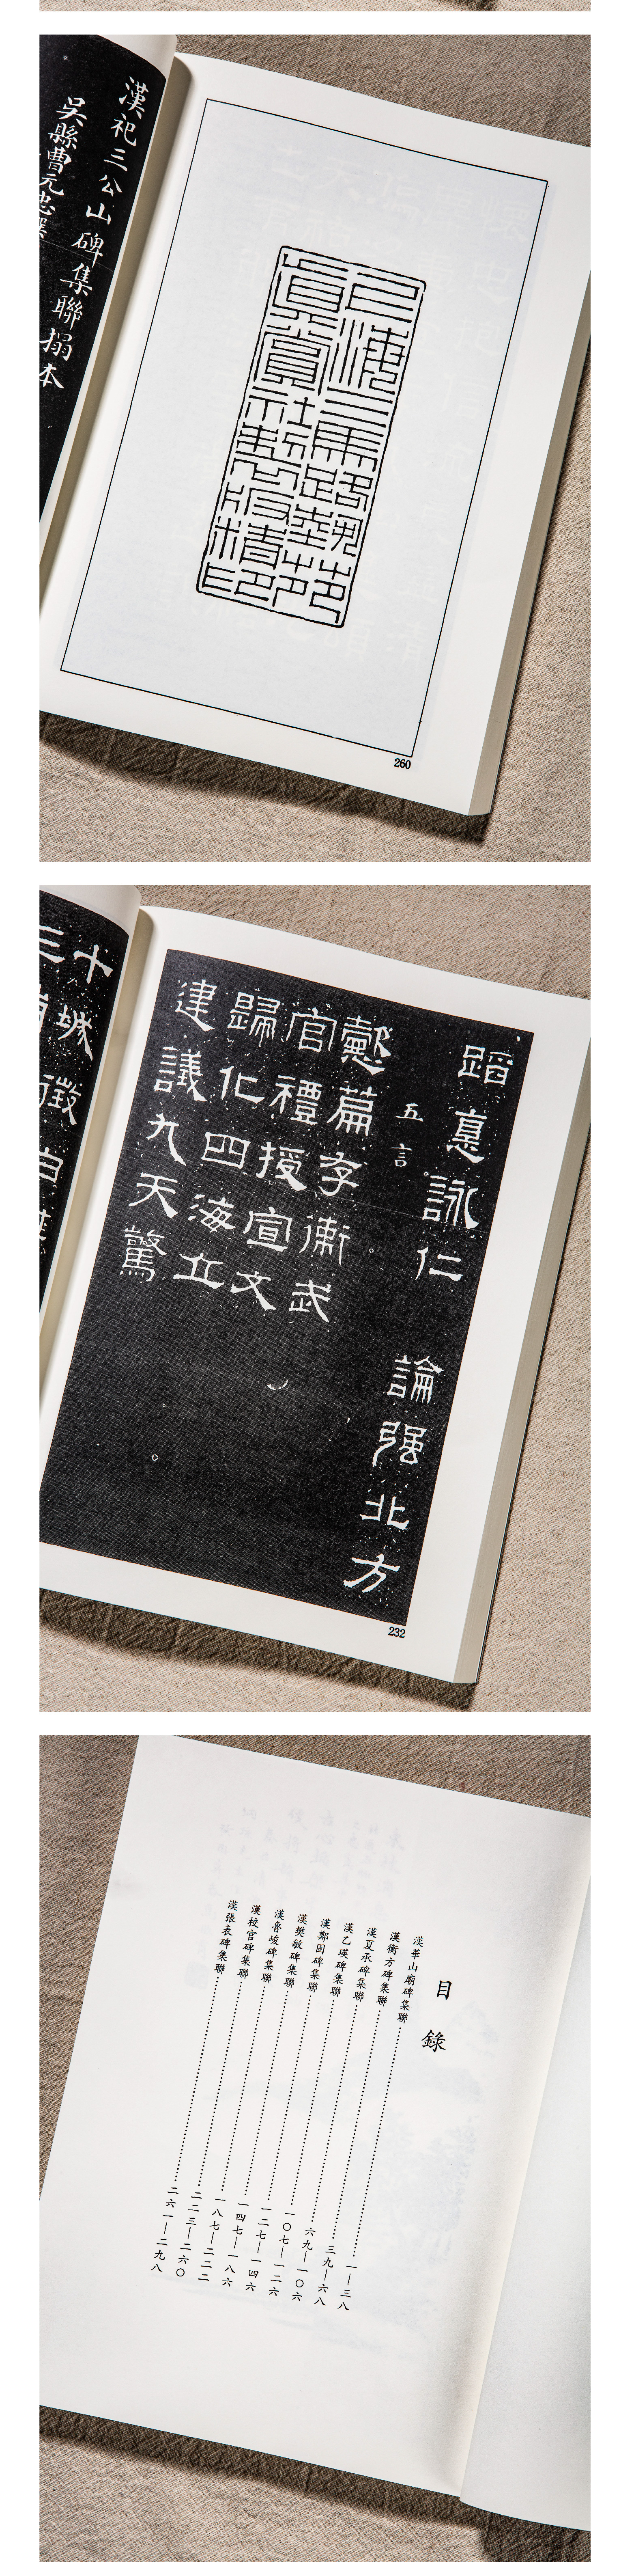 上海三馬路藝苑
真賞社製版精印
260
漢祀三公山碑集聯搨本
吳縣曹元忠
蹈惪詠仁 論强北方
五言
懿篇存衛武
官禮授宣文
歸化四海立
建議九天驚
232
十城
三
目錄
漢華山廟碑集聯……一—三八
漢衡方碑集聯……三九—六八
漢夏承碑集聯……六九—一〇六
漢乙瑛碑集聯……一〇七—一二六
漢鄭固碑集聯……一二七—一四六
漢樊敏碑集聯……一四七—一八六
漢魯峻碑集聯……一八七—二二二
漢校官碑集聯……二二三—二六〇
漢張表碑集聯……二六一—二九八